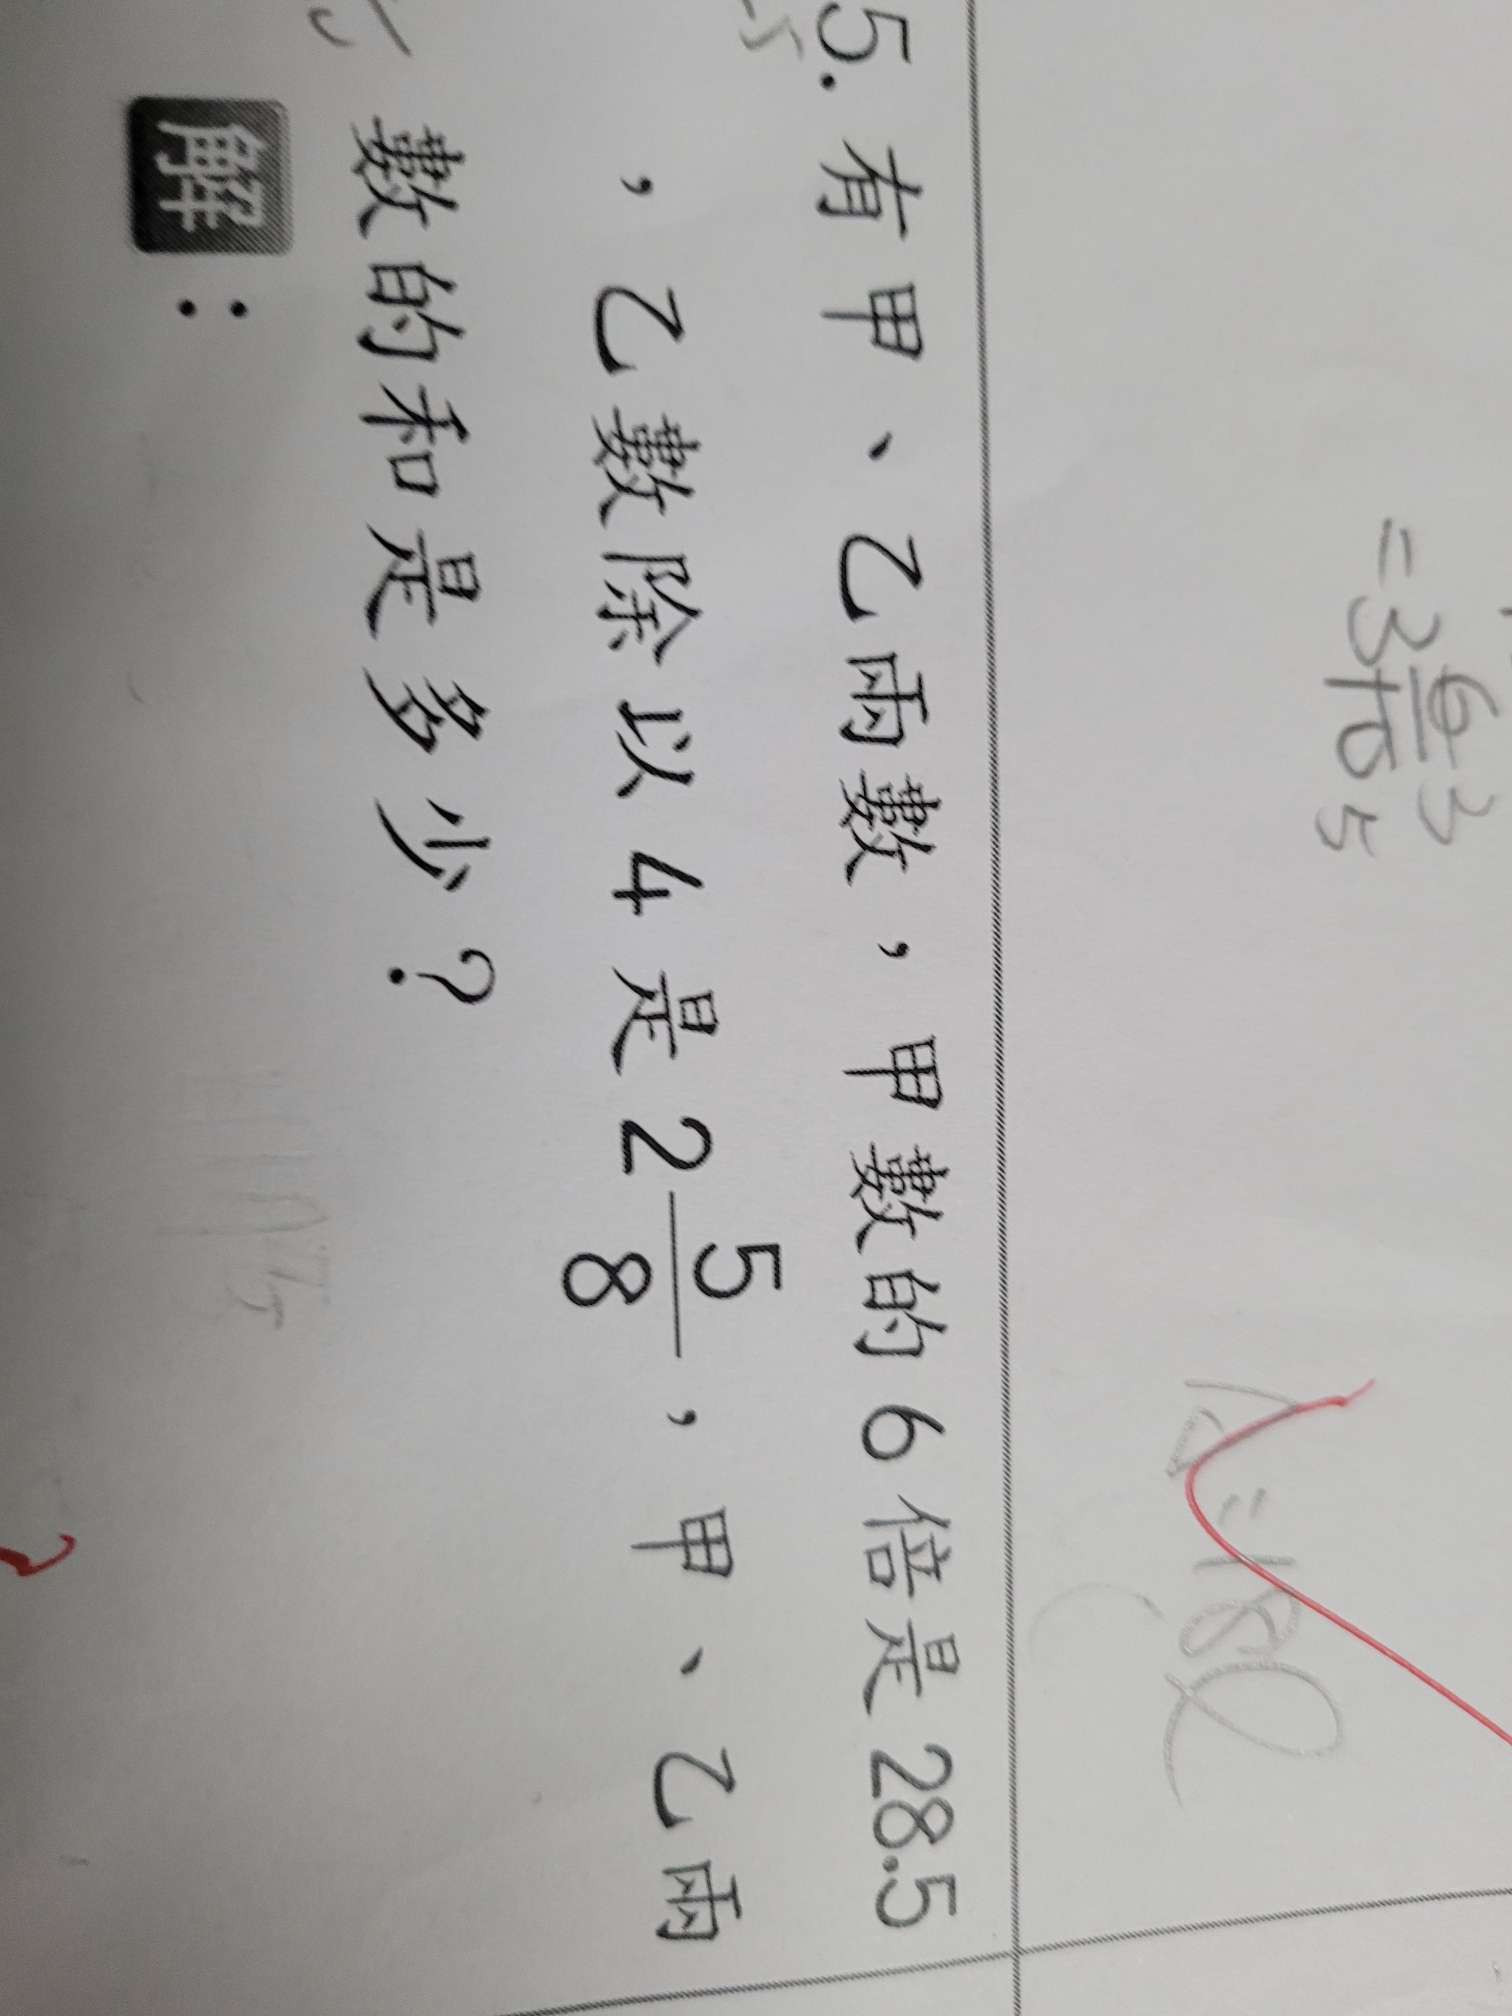 = 3 6/10 3 5
A = 18 l
5. 有甲、乙兩數，甲數的6倍是28.5
，乙數除以4是2 5/8，甲、乙兩
數的和是多少？
解：